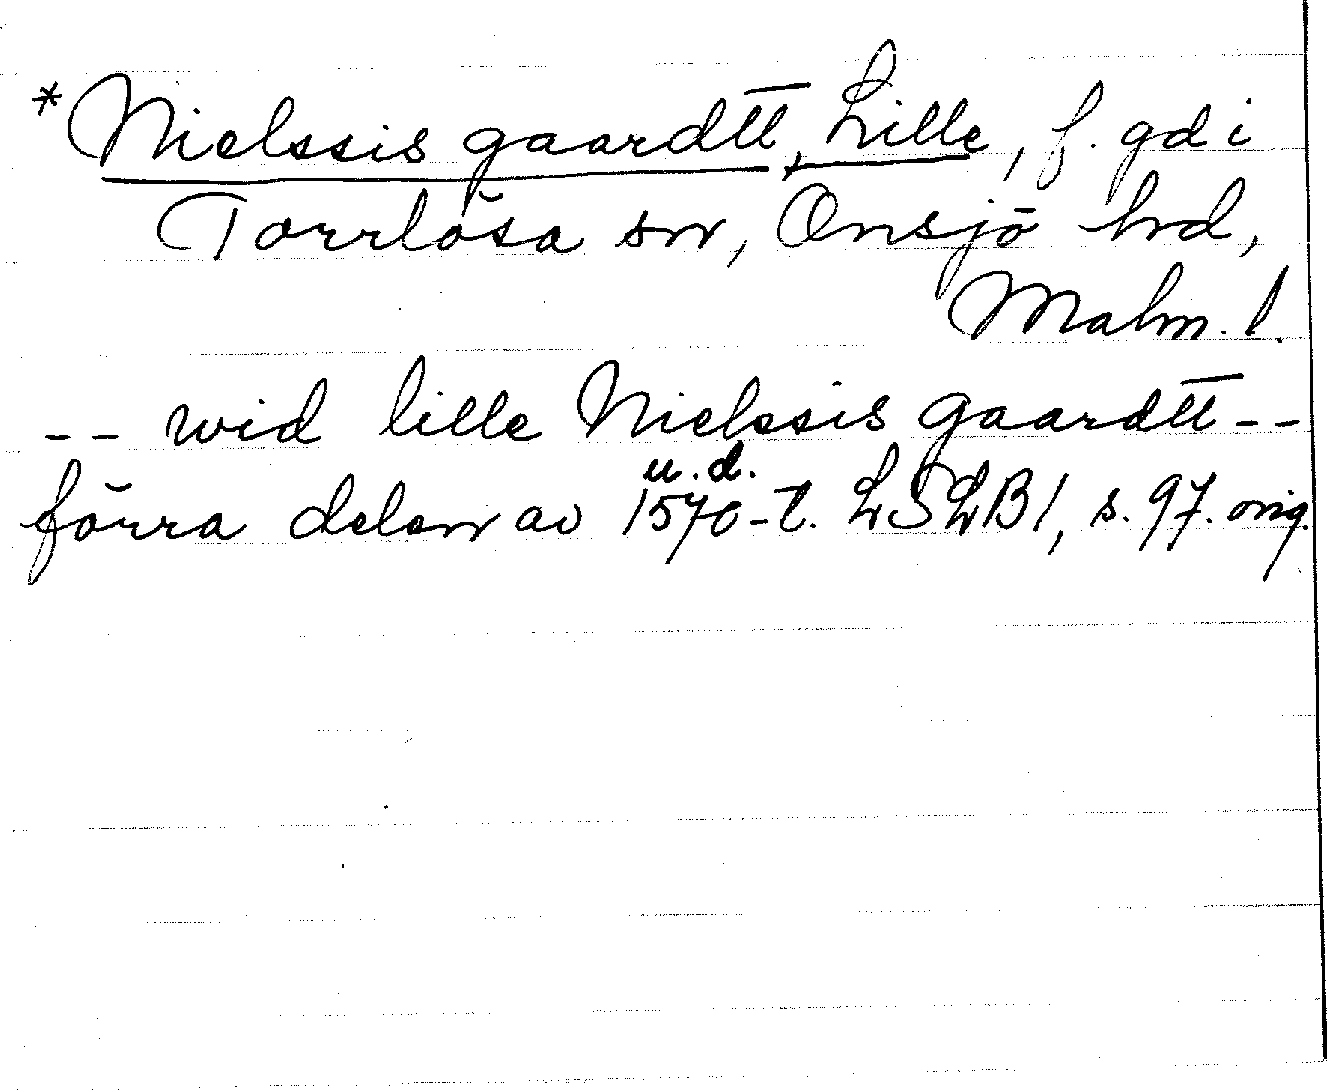 *Nielssis gaardtt, Lille, f. gd i
Torrlösa sn, Onsjö hd,
Malm. l.
-- wid lille Nielssis gaardtt --
u. d.
förra delen av 1570-t. LSLB1, s. 97. orig.